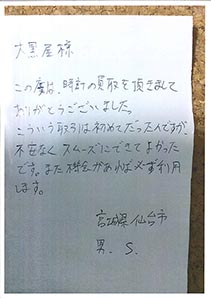 大黒屋様
この度は、時計の買取を頂きまして
ありがとうございました。
こういう取引は初めてだったんですが、
不安なくスムーズにできてよかった
です。また機会があれば必ず利用
します。
宮城県仙台市
男. S.